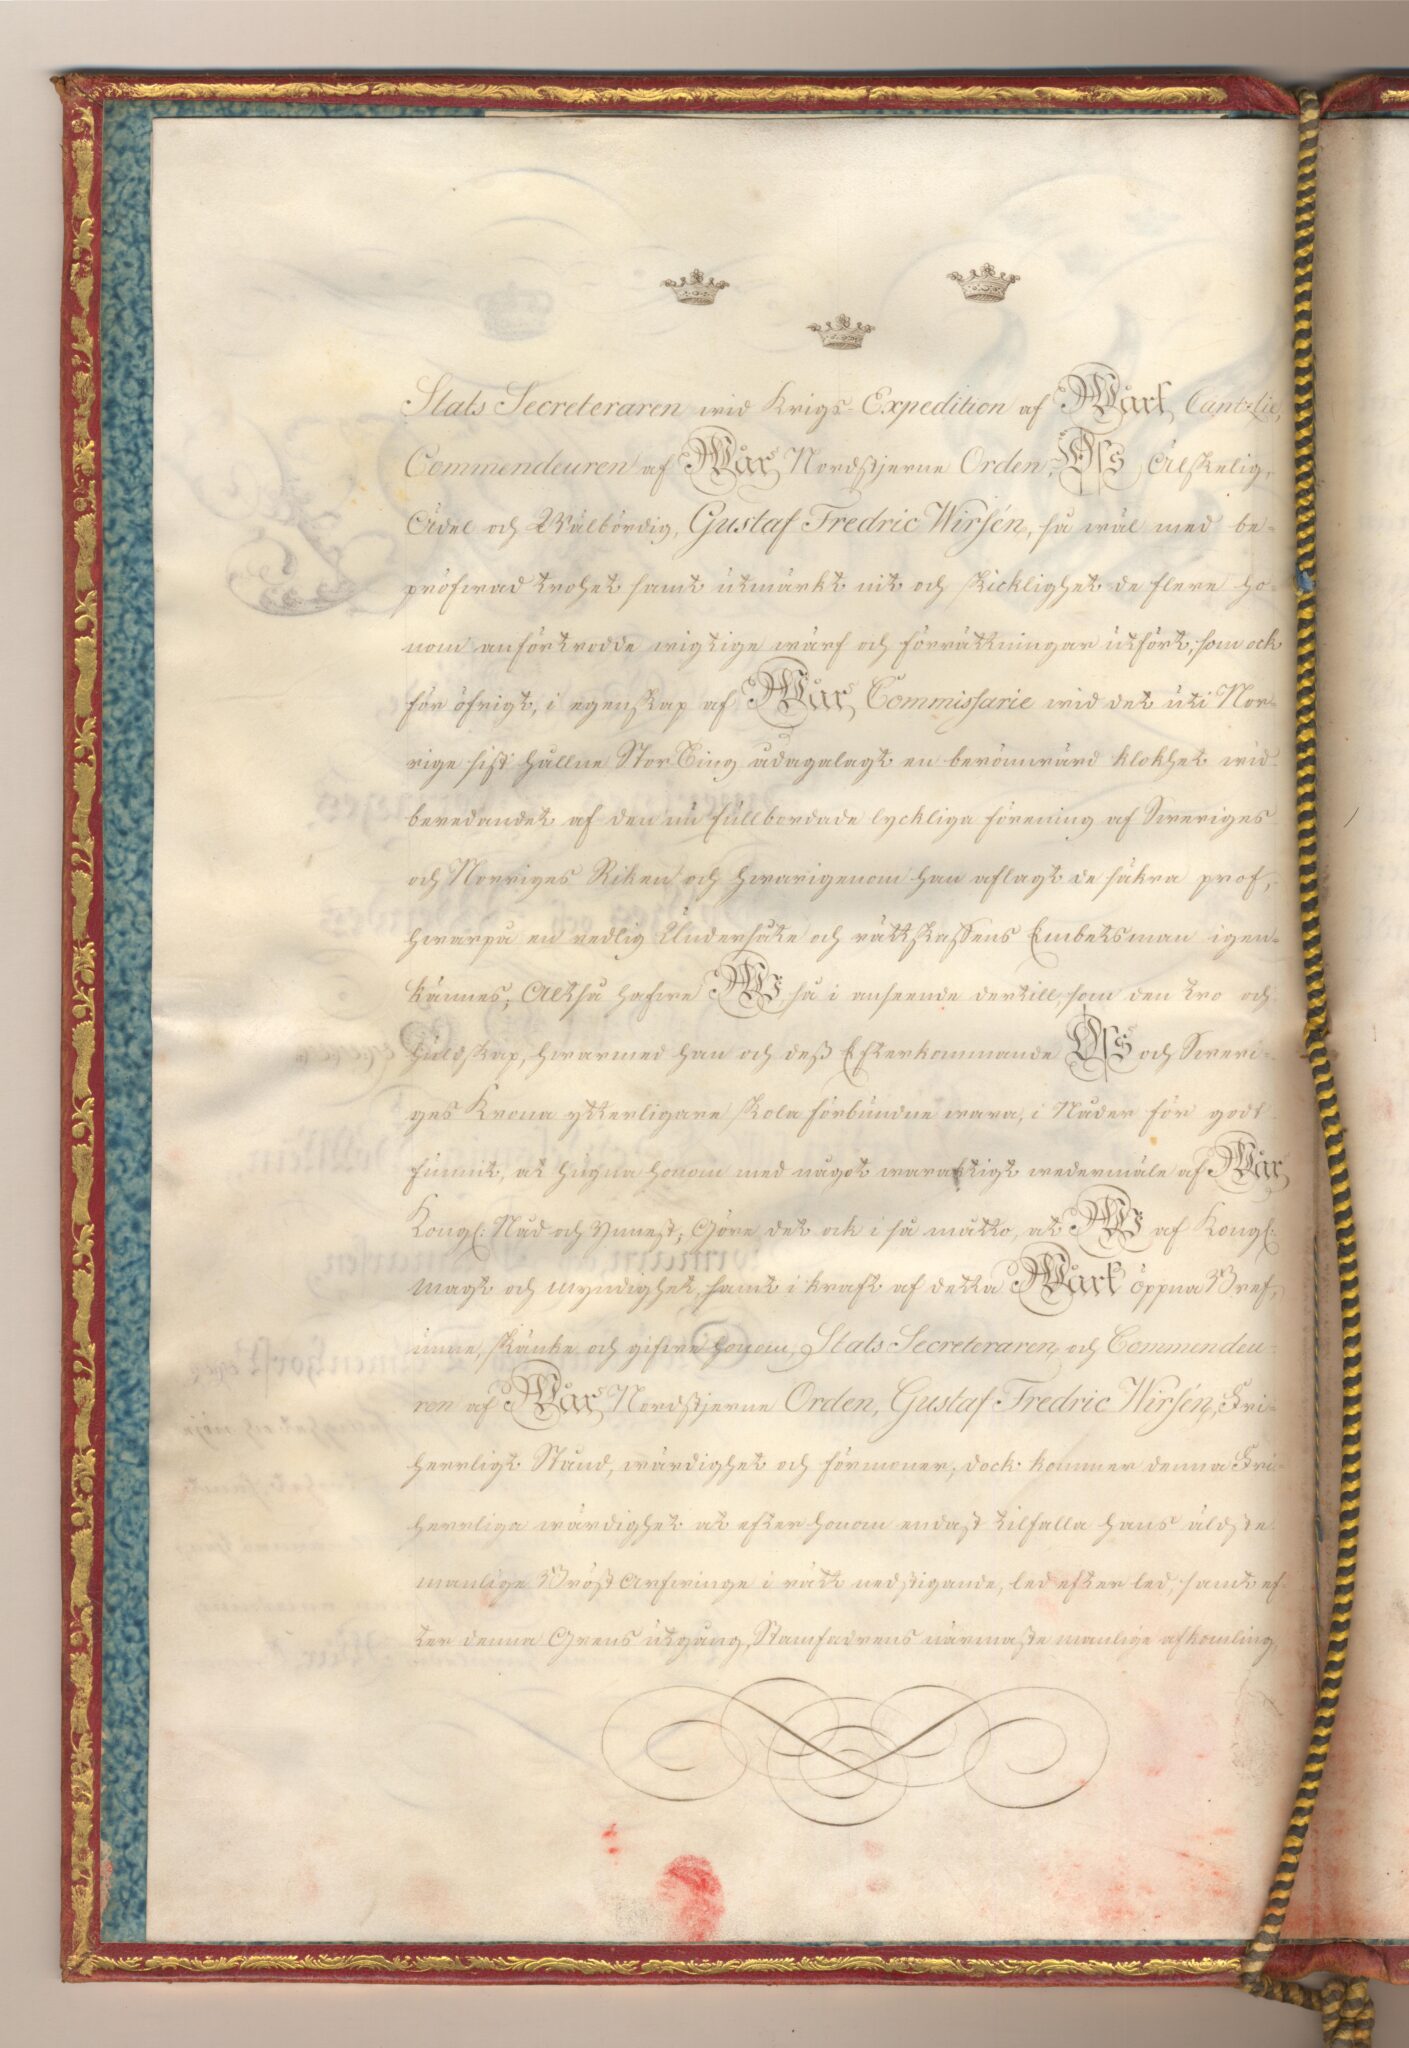 Stats Secreteraren wid Krigs-Expedition af Wårt Cantzlie,
Commendeuren af Wår Nordstjerne Orden, Oss Älskelig,
Ädel och Wälbördig, Gustaf Fredric Wirsén, så wäl med be-
pröfwad trohet samt utmärkt nit och skicklighet de flere ho-
nom anförtrodde wigtige wärf och förrättningar utfört, som ock
för öfrigt, i egenskap af Wår Commissarie wid det uti Nor-
rige sist hållne StorTing ådagalagt en berömwärd klokhet wid
beredandet af den nu fullbordade lyckliga förening af Sweriges
och Norriges Riken och hwarigenom han aflagt de säkra prof,
hwarpå en redlig Undersåte och rättskaffens Embetsman igen-
kännes; Altså hafwe Wi så i anseende dertill, som den tro och
huldskap, hwarmed han och dess Efterkommande Oss och Sweri-
ges Krona ytterligare skola förbundne wara, i Nåder för godt
funnit, at hugna honom med något waraktigt wedermäle af Wår
Kongl: Nåd och Ynnest; Göre det ock i så måtto, at Wi af Kongl:
Magt och Myndighet, samt i kraft af detta Wårt öppna Bref,
unne, skänke och gifwe honom, Stats Secreteraren och Commendeu-
ren af Wår Nordstjerne Orden, Gustaf Fredric Wirsén, Fri-
herrligt Stånd, wärdighet och förmoner, dock kommer denna Fri-
herrliga wärdighet at efter honom endast tilfalla hans äldste
manlige Bröst Arfwinge i rätt nedstigande, led efter led, samt ef-
ter denna Grens utgång, Stamfadrens närmaste manlige afkomling,